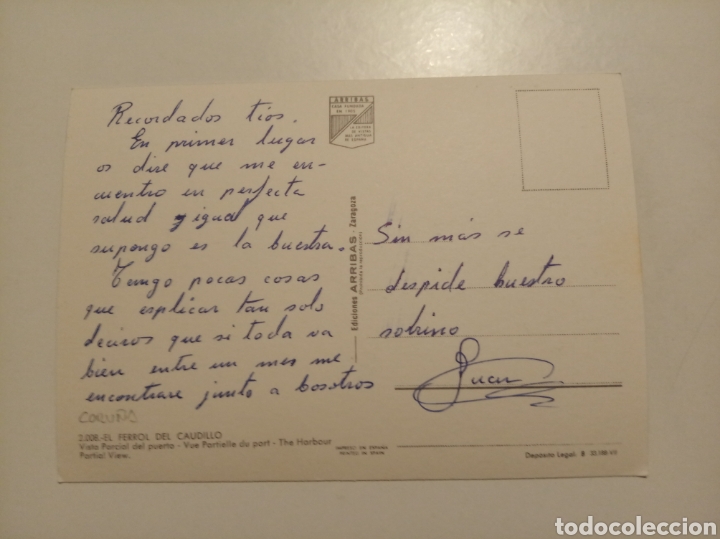 Recordados tios.
En primer lugar
os dire que me en-
cuentro en perfecta
salud y igual que
supongo es la buestra.
Tengo pocas cosas
que esplicar tan solo
deciros que si toda va
bien entre un mes me
encontrare junto a bosotros
ARRIBAS
Ediciones ARRIBAS - Zaragoza
Sin más se
despide buestro
sobrino
Juan
CORUÑA
2.008.-EL FERROL DEL CAUDILLO
Vista Parcial del puerto - Vue Partielle du port - The Harbour
Partial View.
IMPRESO EN ESPAÑA
PRINTED IN SPAIN
Depósito Legal: B
todocoleccion